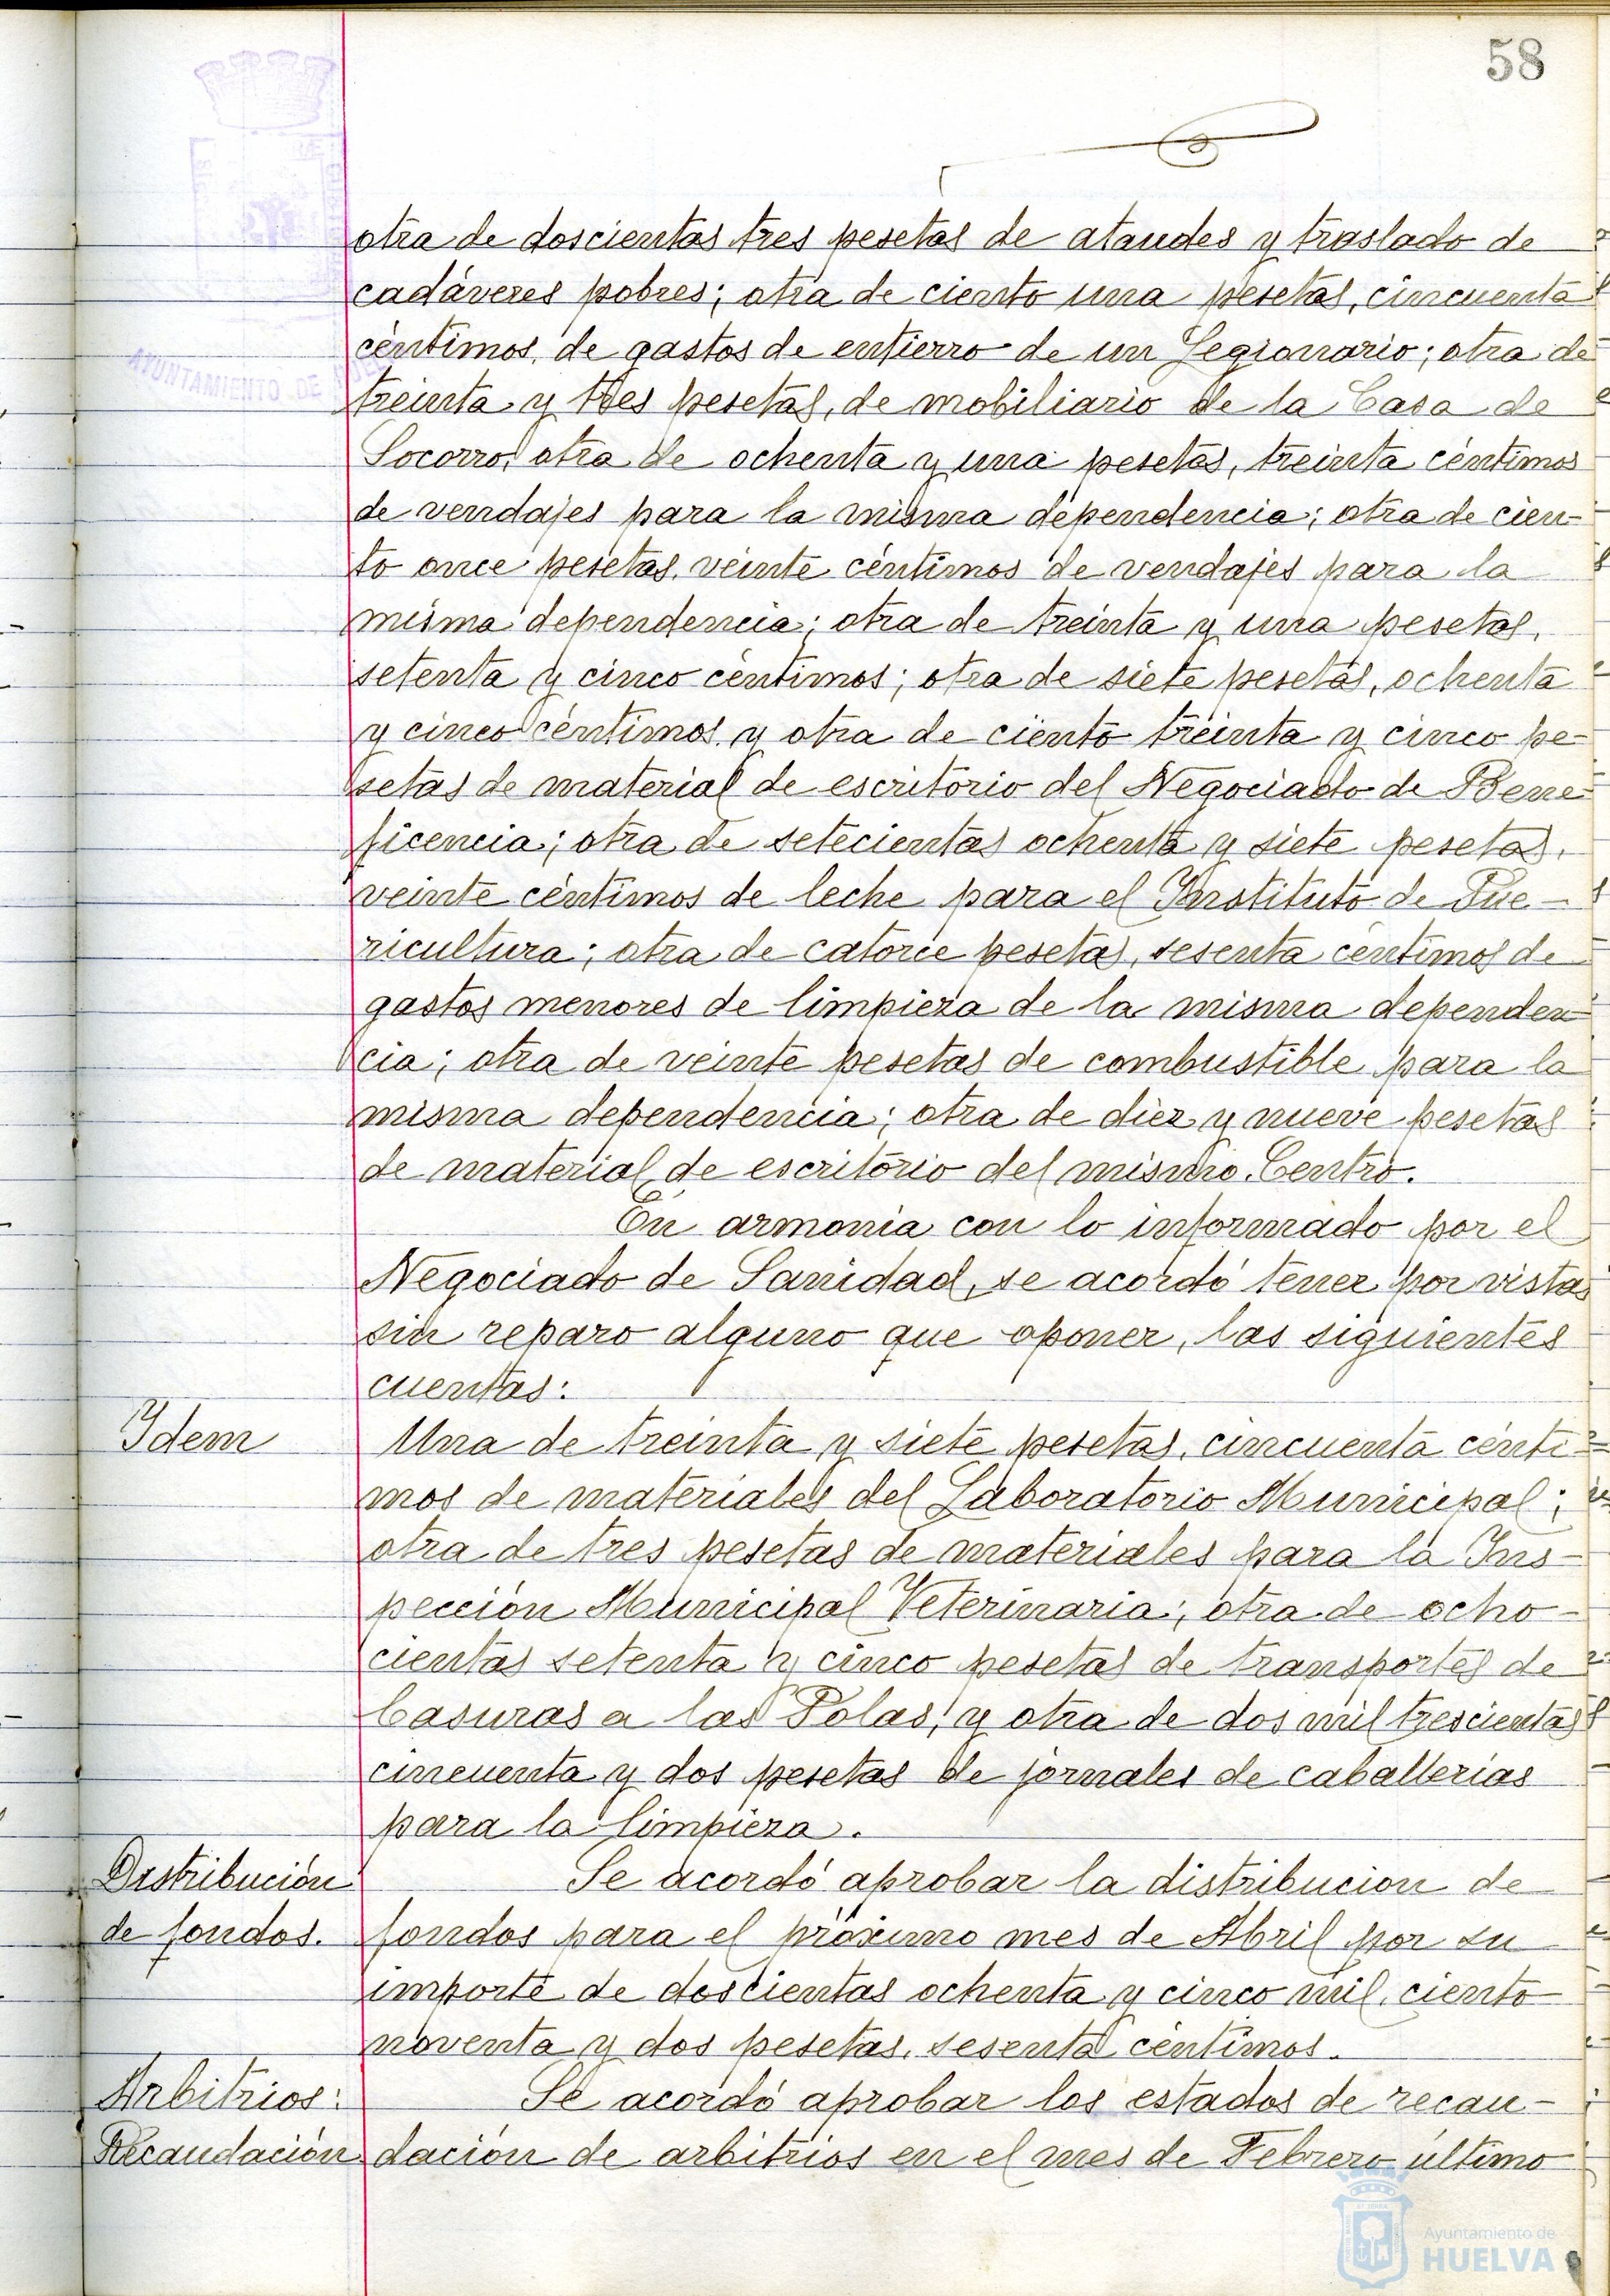 58
otra de doscientas tres pesetas de ataudes y traslado de
cadáveres pobres; otra de ciento una pesetas, cincuenta
céntimos, de gastos de entierro de un Legionario; otra de
AYUNTAMIENTO DE
treinta y tres pesetas, de mobiliario de la Casa de
Socorro; otra de ochenta y una pesetas, treinta céntimos
de vendajes para la misma dependencia; otra de cien-
to once pesetas, veinte céntimos de vendajes para la
misma dependencia; otra de treinta y una pesetas,
setenta y cinco céntimos; otra de siete pesetas, ochenta
y cinco céntimos y otra de ciento treinta y cinco pe-
setas de material de escritorio del Negociado de Bene-
ficencia; otra de setecientas ochenta y siete pesetas,
veinte céntimos de leche para el Instituto de Pue-
ricultura; otra de catorce pesetas, sesenta centimos de
gastos menores de limpieza de la misma dependen-
cia; otra de veinte pesetas de combustible para la
misma dependencia; otra de diez y nueve pesetas
de material de escritorio del mismo Centro.
En armonia con lo informado por el
Negociado de Sanidad, se acordó tener por vistas
sin reparo alguno que oponer, las siguientes
cuentas:
Idem
Una de treinta y siete pesetas, cincuenta cénti-
mos de materiales del Laboratorio Municipal;
otra de tres pesetas de materiales para la Ins-
pección Municipal Veterinaria; otra de ocho-
cientas setenta y cinco pesetas de transportes de
basuras a las Polas, y otra de dos mil trescientas
cincuenta y dos pesetas de jornales de caballerías
para la limpieza.
Distribución
de fondos.
Se acordó aprobar la distribucion de
fondos para el próximo mes de Abril por su
importe de doscientas ochenta y cinco mil, ciento
noventa y dos pesetas, sesenta céntimos.
Arbitrios:
Recaudación
Se acordó aprobar los estados de recau-
dación de arbitrios en el mes de Febrero último
Ayuntamiento de
HUELVA